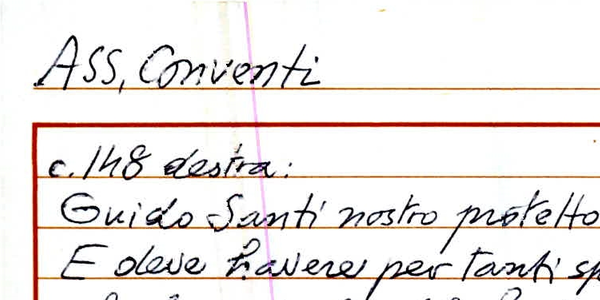 ASS, Conventi
c. 148 destra:
Guido Santi nostro protetto
E deve havere per tanti sp